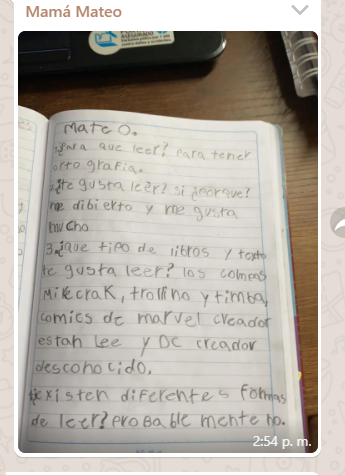 Mamá Mateo
Mateo.
¿para que leer? Para tener
orto grafia.
¿te gusta leer? si ¿porque?
me dibierto y me gusta
mucho
3¿que tipo de libros y texto
te gusta leer? los compas
Mikecrak, trollino y timba,
comics de marvel creador
estan lee y DC creador
desconocido,
existen diferentes formas
de leer? probablemente no.
2:54 p. m.